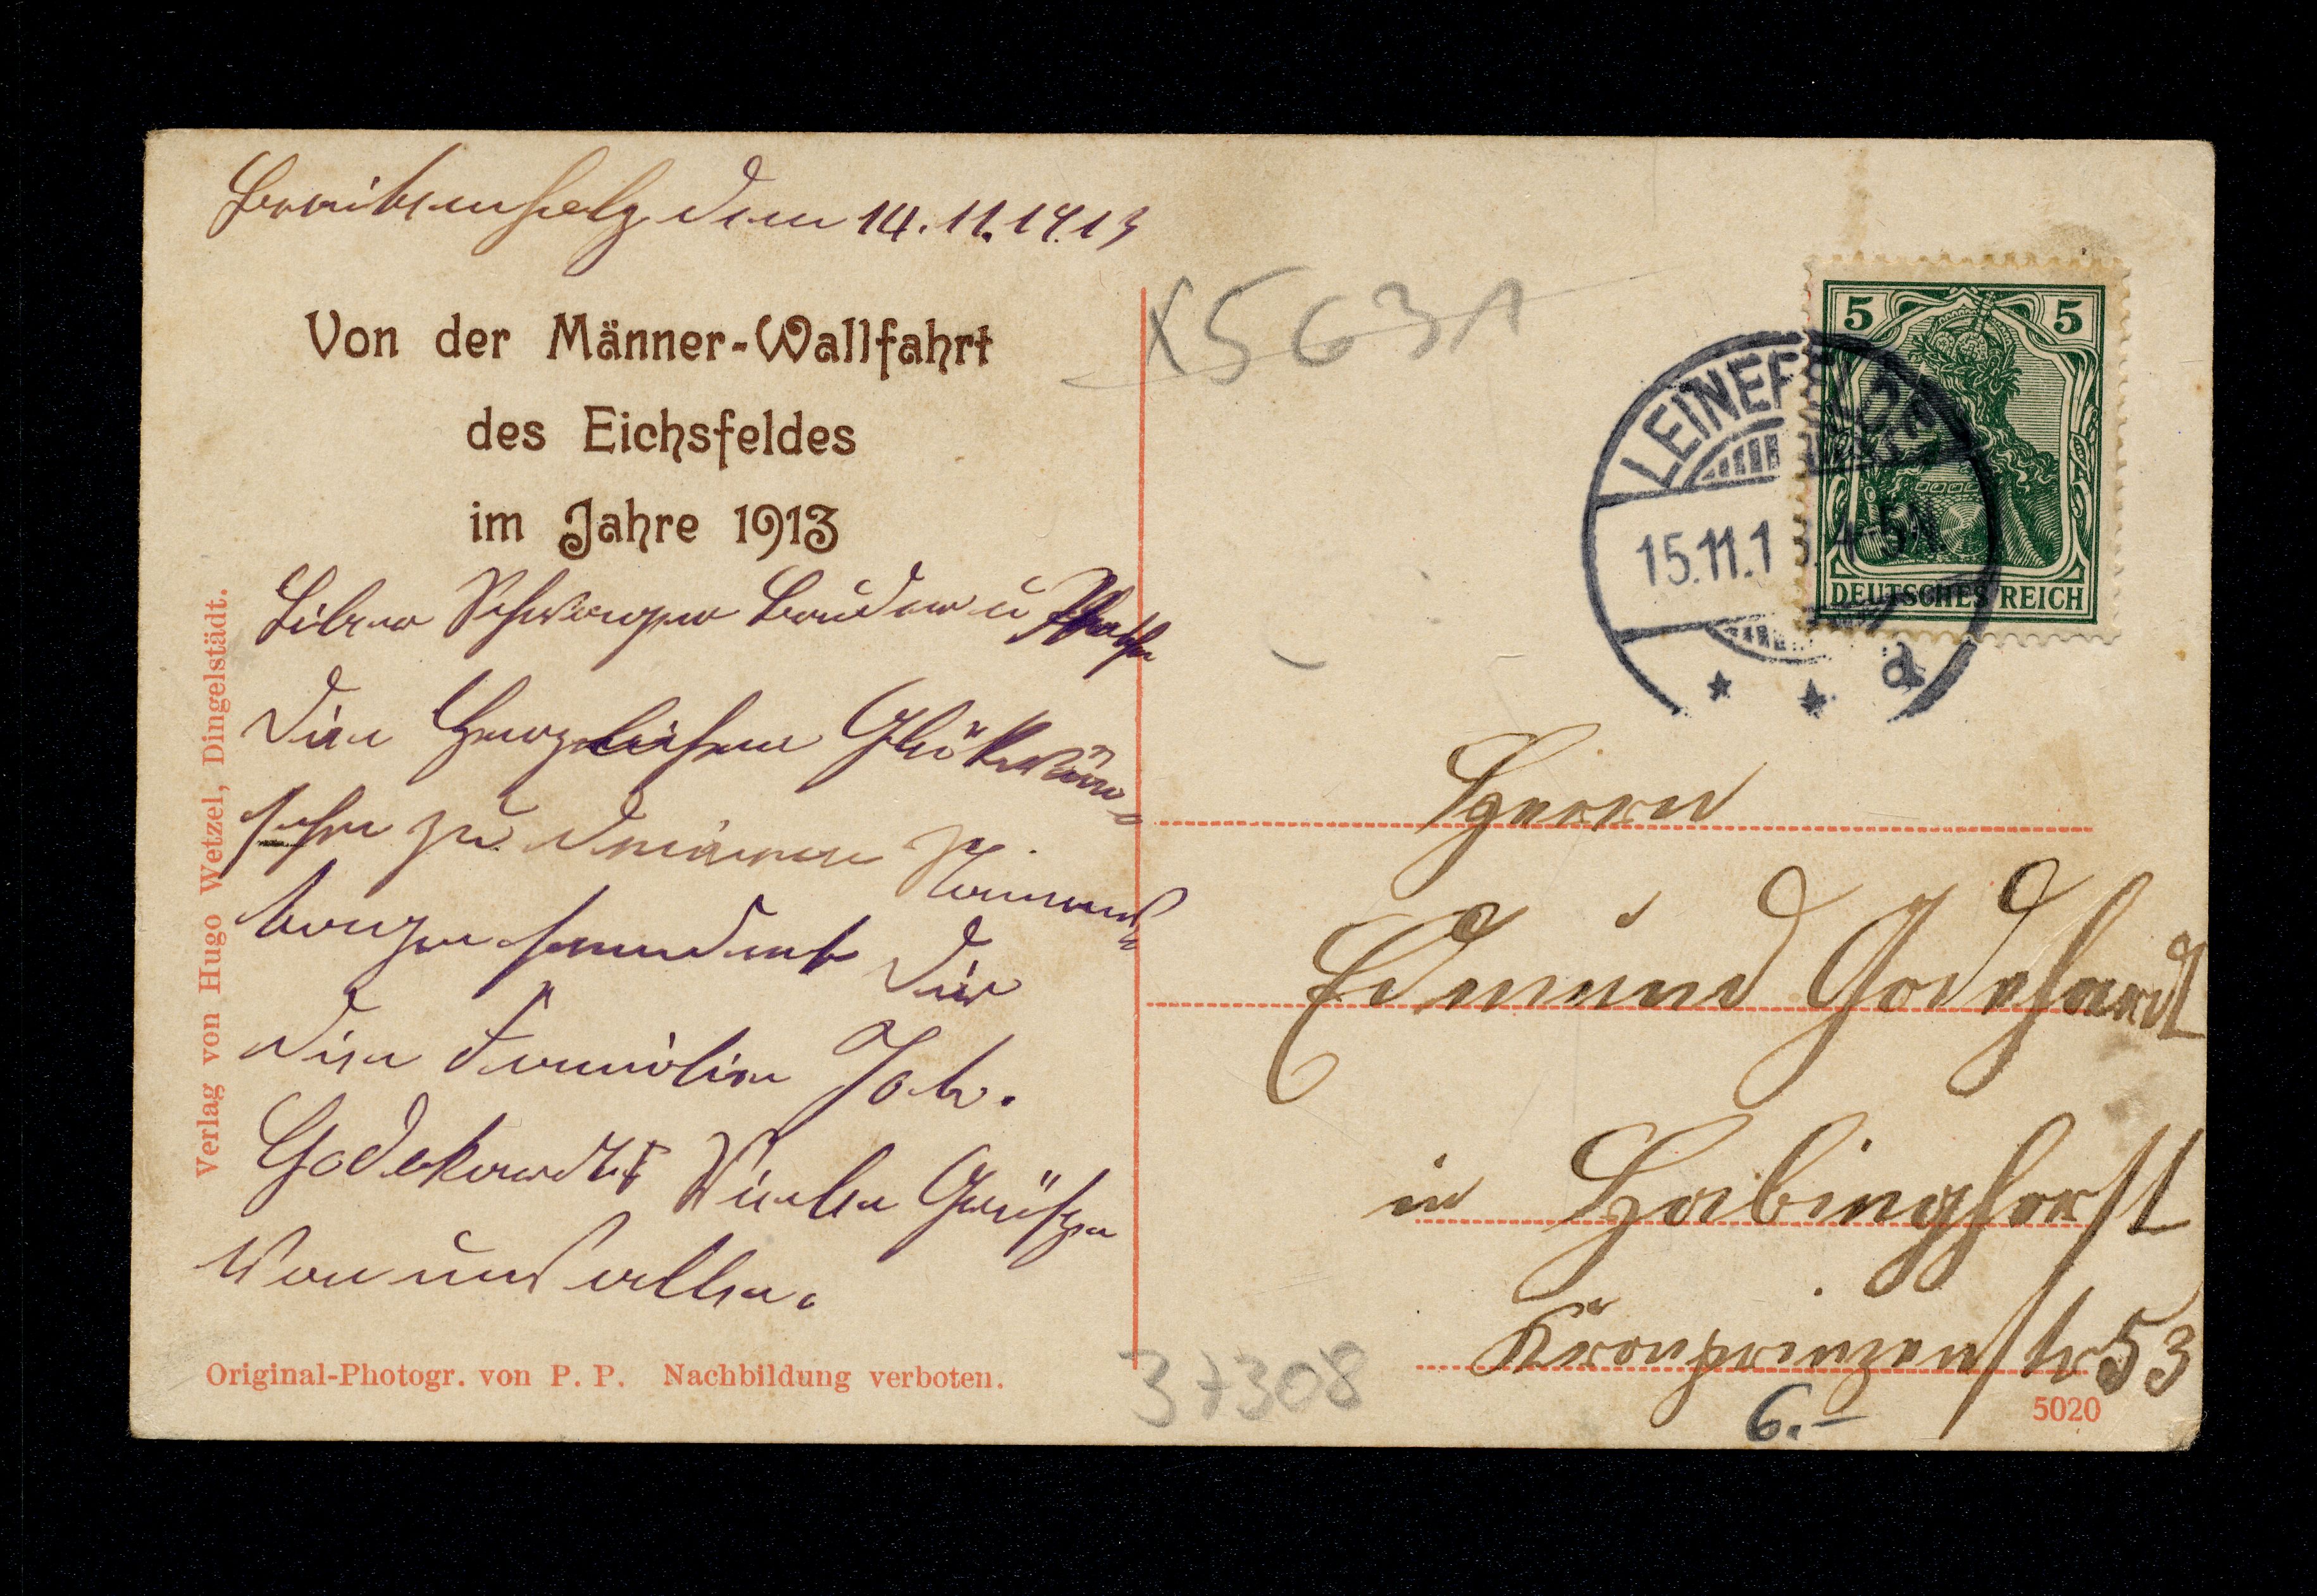 Breitenholz den 14.11.1913
Von der Männer-Wallfahrt
des Eichsfeldes
im Jahre 1913
Liber Schwager Bruder u
Die Herzlichen Glükwün-
sche zu deinem Namens-
tage sendet dir
die Familie Joh.
Godehardt Viele Grüße
Von uns allen.
Verlag von Hugo Wetzel, Dingelstädt.
Original-Photogr. von P. P. Nachbildung verboten.
X5G31
5 5
DEUTSCHES REICH
LEINEFELDE
15.11.13. 4-5N.
* * a
Herrn
Edmund Godehardt
in Habinghorst
Kronprinzenstr 53
37308
6.–
5020